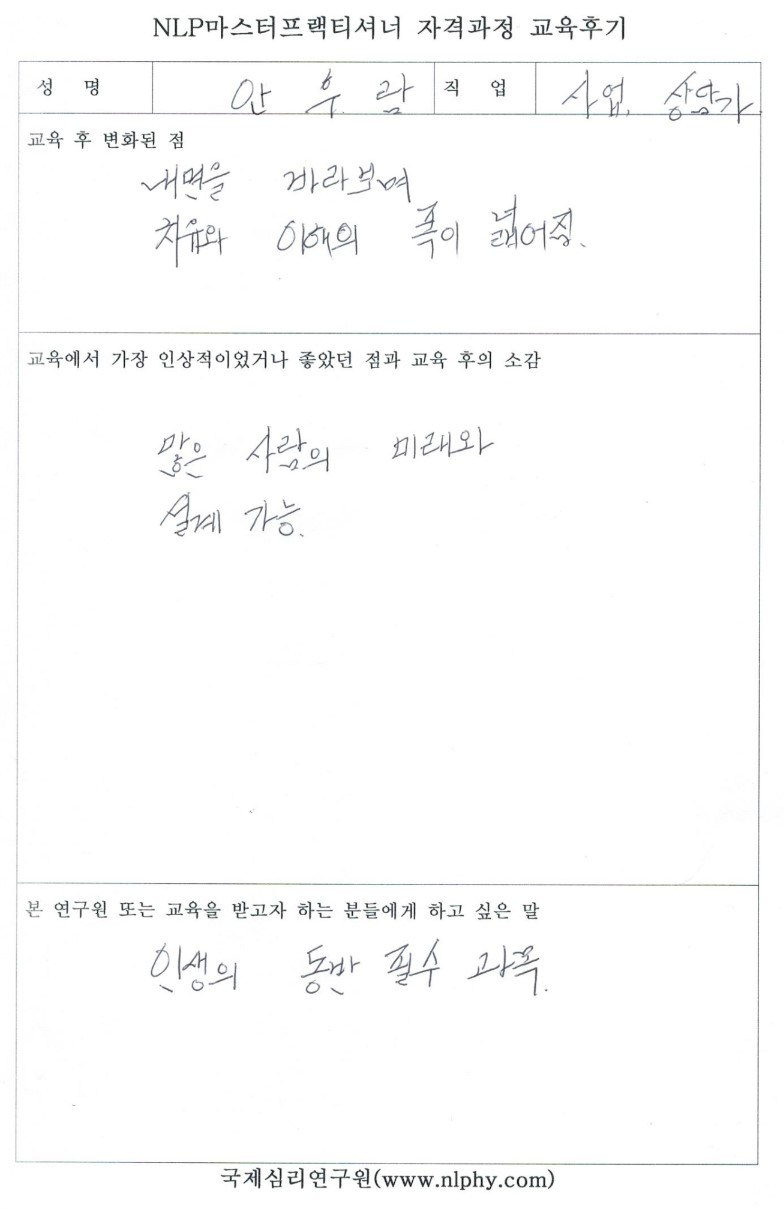 NLP마스터프랙티셔너 자격과정 교육후기
성 명 안 후 람 직 업 사업, 상담가
교육 후 변화된 점
내면을 바라보며
치유와 이해의 폭이 넓어짐.
교육에서 가장 인상적이었거나 좋았던 점과 교육 후의 소감
많은 사람의 미래와
설계 가능.
본 연구원 또는 교육을 받고자 하는 분들에게 하고 싶은 말
인생의 동반 필수 과목.
국제심리연구원(www.nlphy.com)